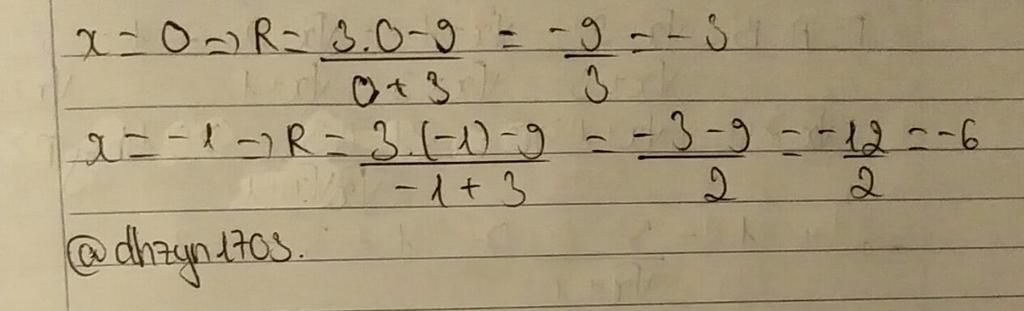 x = 0 => R = \frac{3.0-9}{0+3} = \frac{-9}{3} = -3
x = -1 => R = \frac{3.(-1)-9}{-1+3} = \frac{-3-9}{2} = \frac{-12}{2} = -6
@dhzyn1703.